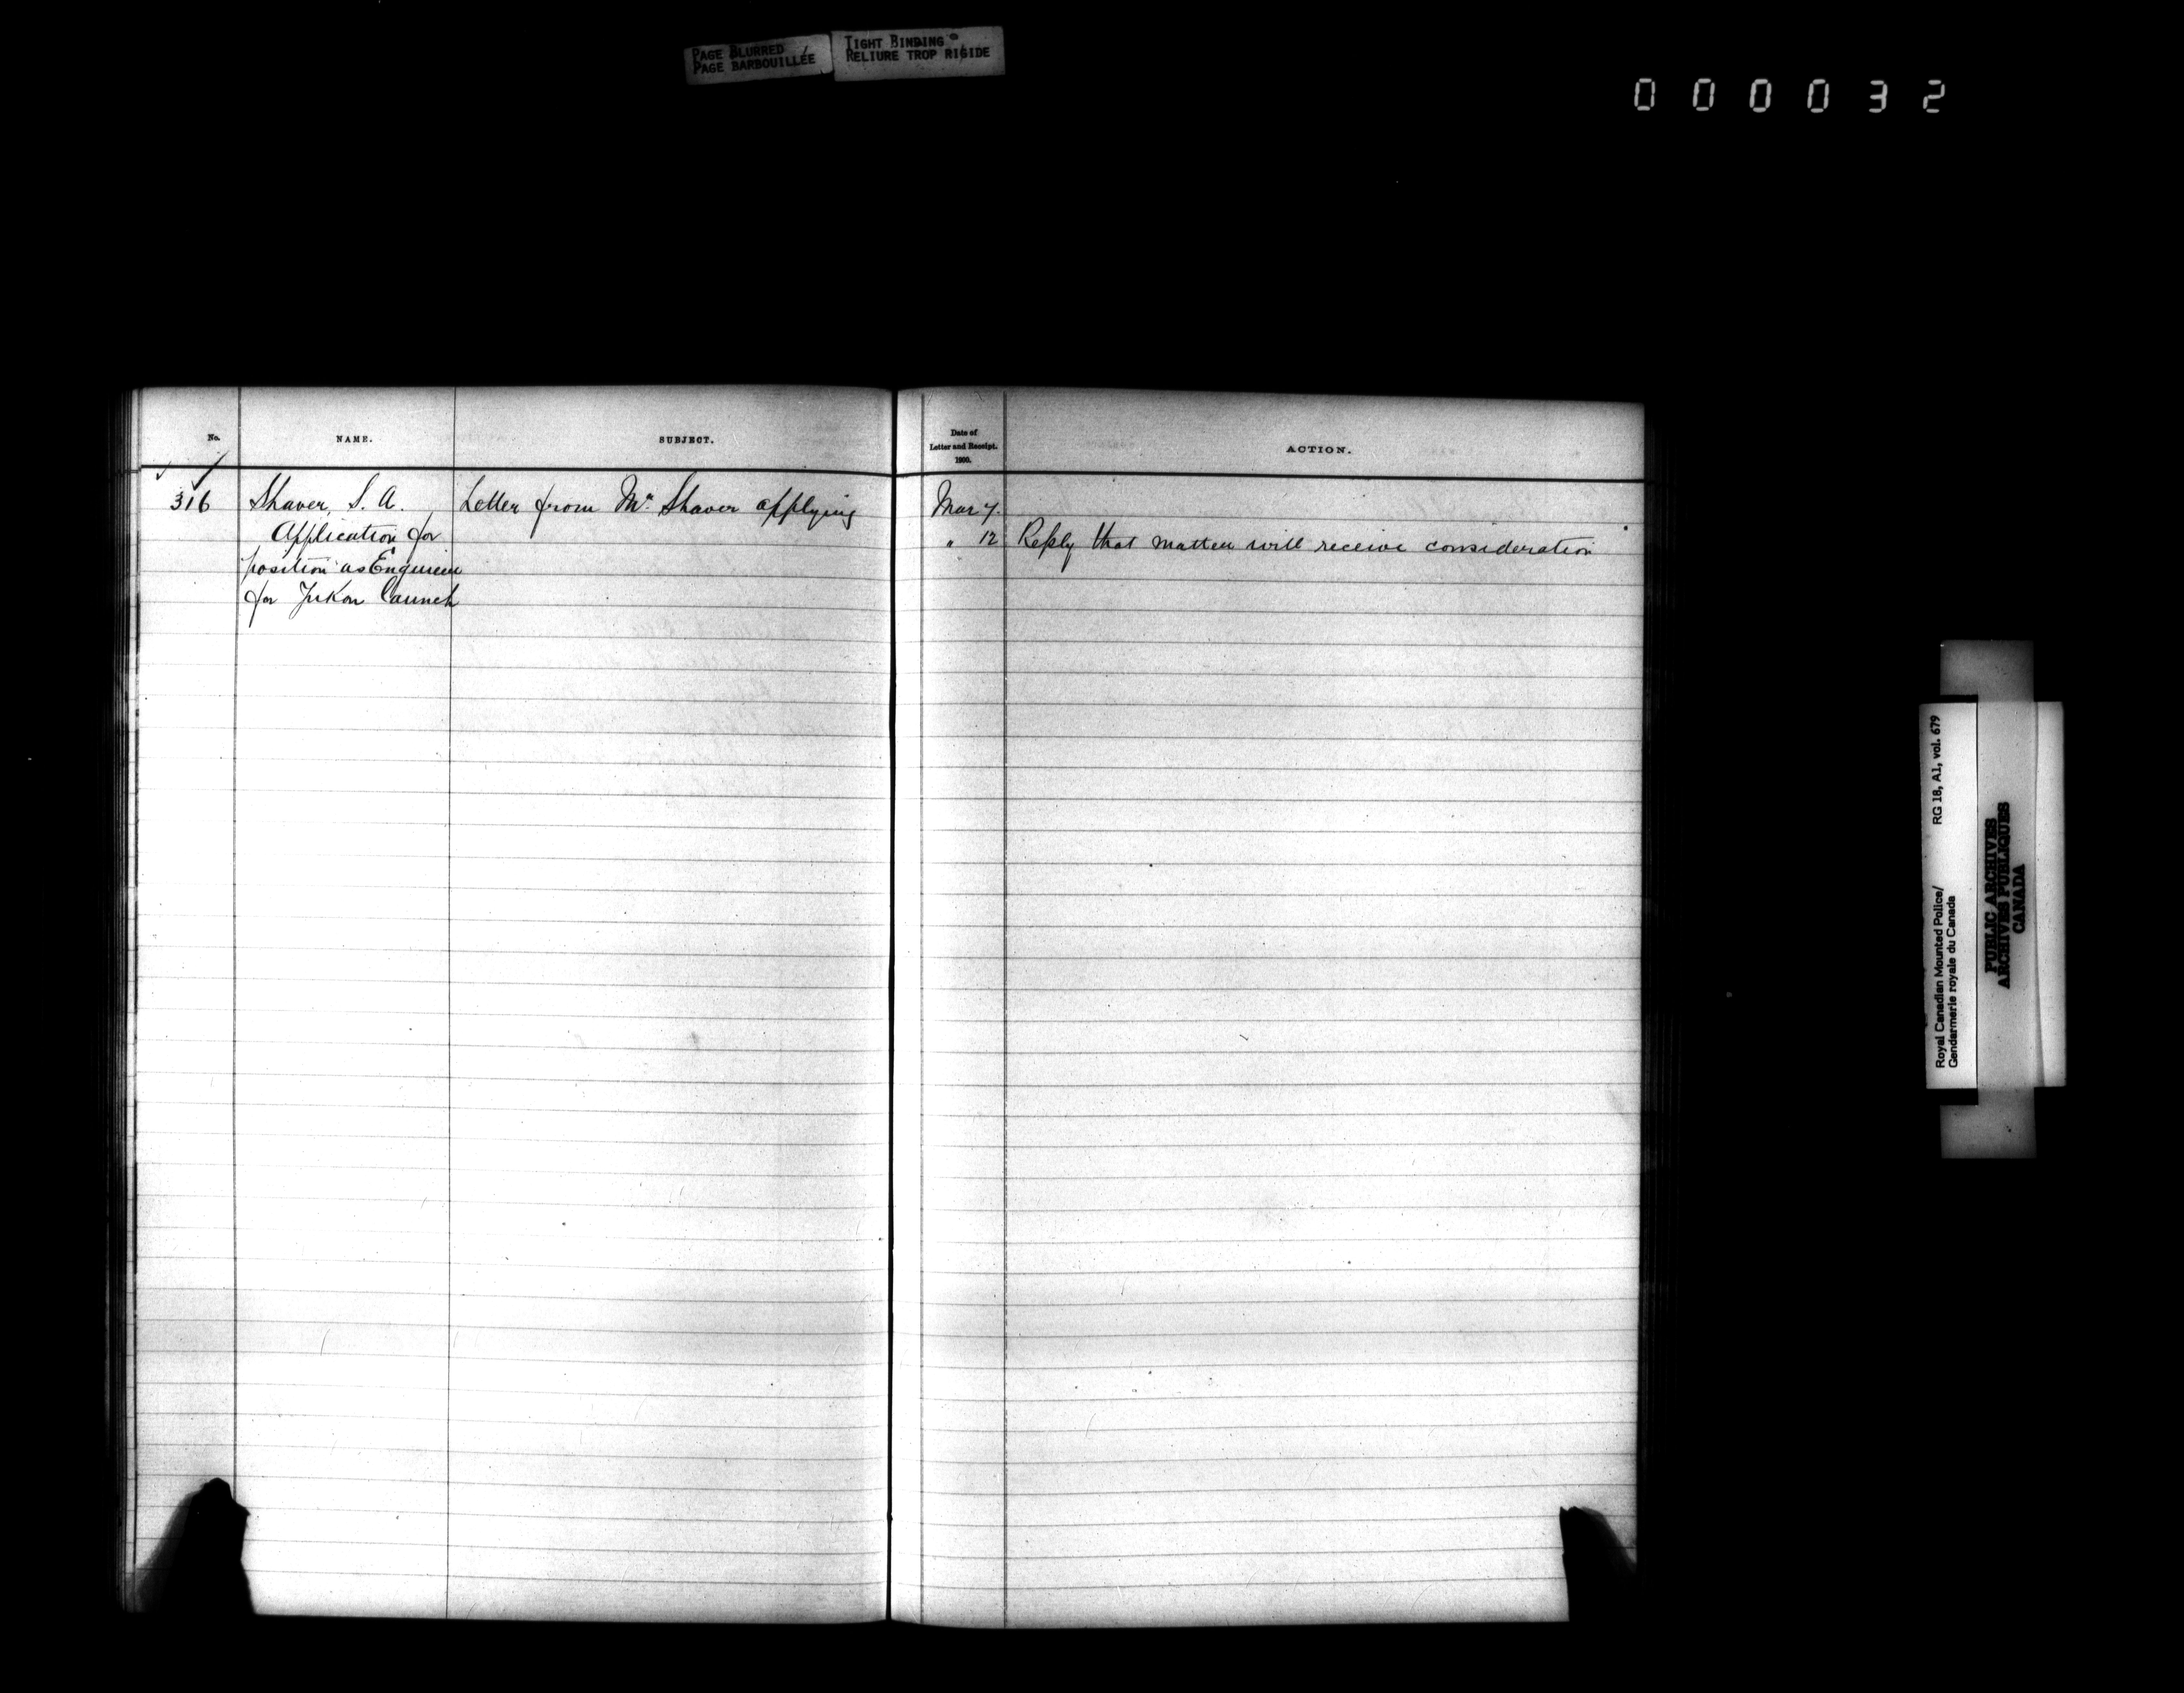 PAGE BLURRED
PAGE BARBOUILLÉE
TIGHT BINDING
RELIURE TROP RIGIDE
000032
No.
NAME.
SUBJECT.
Date of
Letter and Receipt.
1900.
ACTION.
316
Shaver, S. A.
Letter from Mr. Shaver applying
Mar 7.
Application for
" 12
Reply that matter will receive consideration
position as Engineer
for Yukon Launch
Royal Canadian Mounted Police/ RG 18, A1, vol. 679
Gendarmerie royale du Canada
PUBLIC ARCHIVES
ARCHIVES PUBLIQUES
CANADA